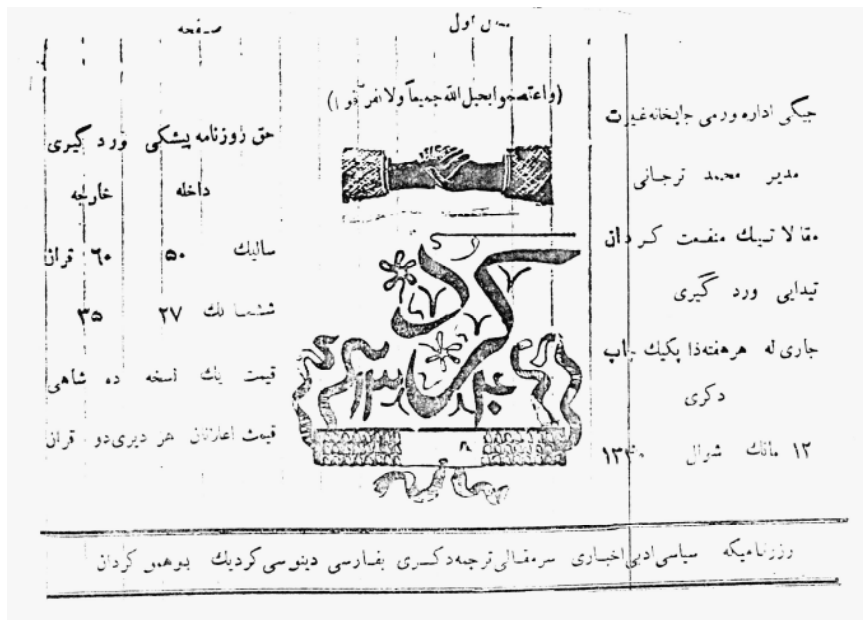 سال اول
صفحه
(واعتصموا بحبل الله جمیعاً ولا تفرقوا)
جیگی اداره ورمی چاپخانه غیرت
مدیر محمد ترجانی
مقالاتیك منفعت کردان
تیدایی ورد گیری
جاری له هر هفته ذا پکیك چاپ
دکری
۱۲ مانك شوال ۱۳۴۰
کرد
۱۳۴۰
حق روزنامه پیشکی ورد گیری
داخله خارجه
سالیك ۵۰ ۶۰ قران
ششمانك ۲۷ ۳۵
قیمت یك نسخه ده شاهی
قیمت اعلانان هر دیری دو قران
روزنامیکه سیاسی ادبی اخباری سرمقالی ترجمه دکری بفارسی دینوسی کردیك بوهمو کردان